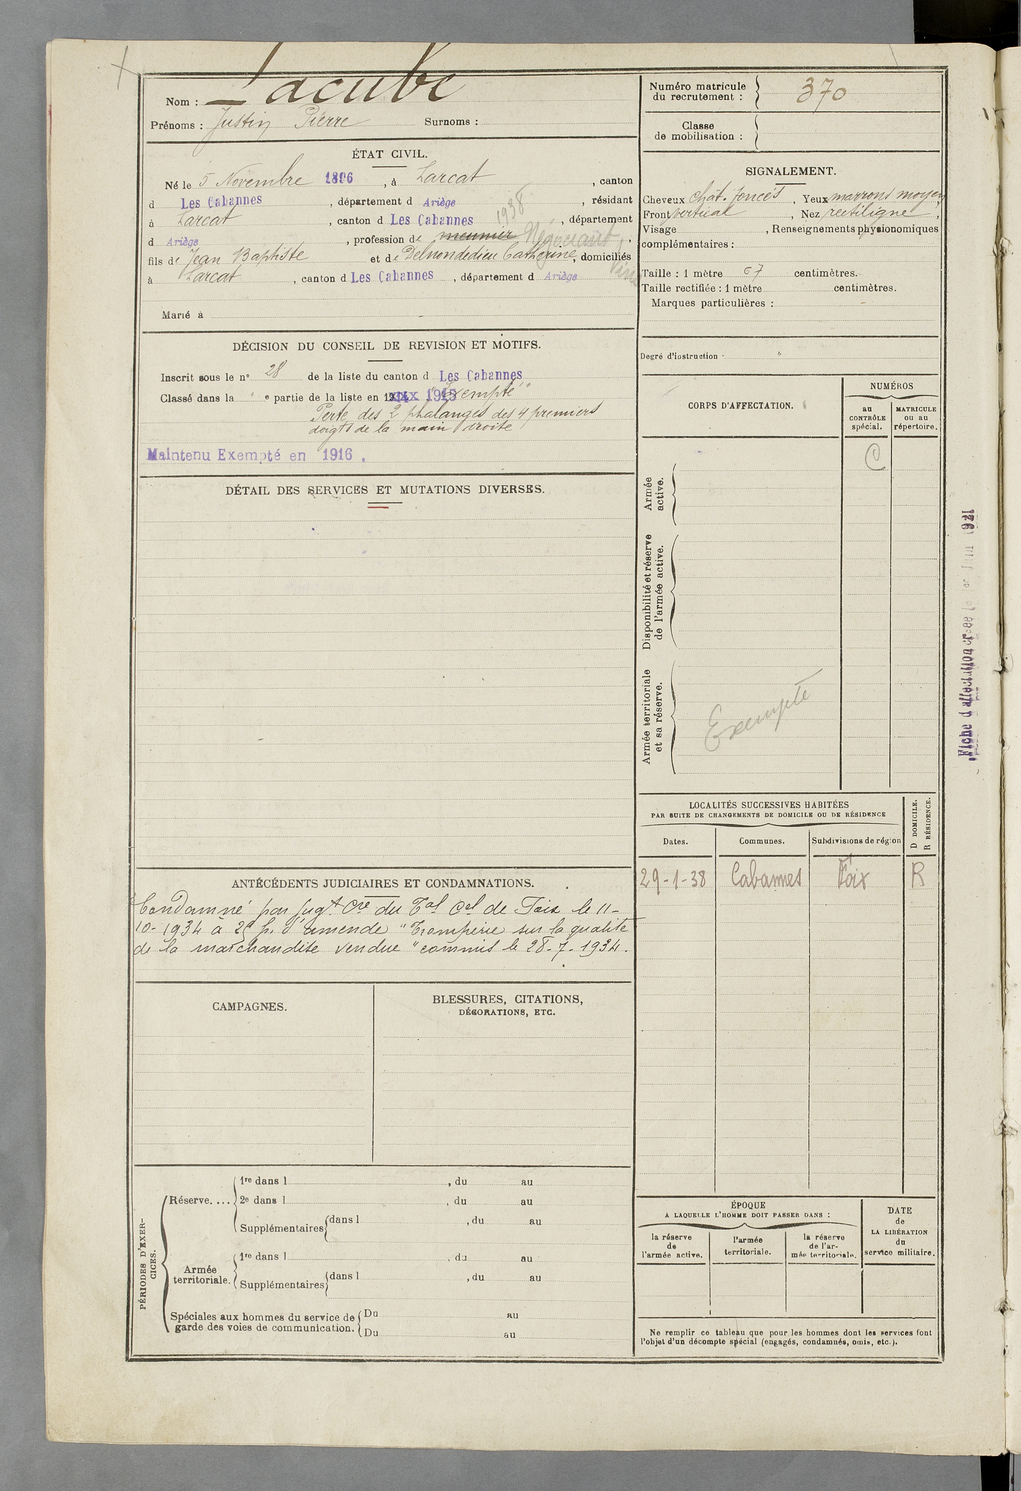 Nom : Lacube
Prénoms : Justin Pierre Surnoms :
ÉTAT CIVIL.
Né le 5 Novembre 1896, à Larcat, canton
d Les Cabannes, département d Ariège, résidant
à Larcat, canton d Les Cabannes, département
1938
d Ariège, profession de meunier Négociant
vins
fils de Jean Baptiste et de Delmondedieu Catherine, domiciliés
à Larcat, canton d Les Cabannes, département d Ariège
Marié à
DÉCISION DU CONSEIL DE REVISION ET MOTIFS.
Inscrit sous le n° 28 de la liste du canton d Les Cabannes
Classé dans la " e partie de la liste en 1915 "Exempté"
Perte des 2 phalanges des 4 premiers
doigts de la main droite
Maintenu Exempté en 1916.
DÉTAIL DES SERVICES ET MUTATIONS DIVERSES.
ANTÉCÉDENTS JUDICIAIRES ET CONDAMNATIONS.
Condamné par jugt Cre du Tal Cel de Foix le 11-
10-1934 à 25 f. d'amende "Tromperie sur la qualité
de la marchandise vendue" commis le 28-7-1934.
CAMPAGNES.
BLESSURES, CITATIONS,
DÉCORATIONS, ETC.
PÉRIODES D'EXERCICES.
Réserve....
1re dans l , du au
2e dans l , du au
Supplémentaires dans l , du au
Armée
territoriale.
1re dans l , du au
Supplémentaires dans l , du au
Spéciales aux hommes du service de
garde des voies de communication.
Du au
Du au
Numéro matricule
du recrutement : 370
Classe
de mobilisation :
SIGNALEMENT.
Cheveux chât. foncés, Yeux marrons moyen
Front vertical, Nez rectiligne,
Visage , Renseignements physionomiques
complémentaires :
Taille : 1 mètre 67 centimètres.
Taille rectifiée : 1 mètre centimètres.
Marques particulières :
Degré d'instruction
CORPS D'AFFECTATION.
NUMÉROS
au
CONTRÔLE
spécial.
MATRICULE
ou au
répertoire.
C
Armée
active.
Disponibilité et réserve
de l'armée active.
Armée territoriale
et sa réserve.
Exempté
LOCALITÉS SUCCESSIVES HABITÉES
PAR SUITE DE CHANGEMENTS DE DOMICILE OU DE RÉSIDENCE
D DOMICILE.
R RÉSIDENCE.
Dates. Communes. Subdivisions de région
29-1-38 Cabannes Foix R
ÉPOQUE
À LAQUELLE L'HOMME DOIT PASSER DANS :
la réserve
de
l'armée active.
l'armée
territoriale.
la réserve
de l'ar-
mée territoriale.
DATE
de
LA LIBÉRATION
du
service militaire.
Ne remplir ce tableau que pour les hommes dont les services font
l'objet d'un décompte spécial (engagés, condamnés, omis, etc.).
Fiche d'affectation créée le 1er Juin 1921